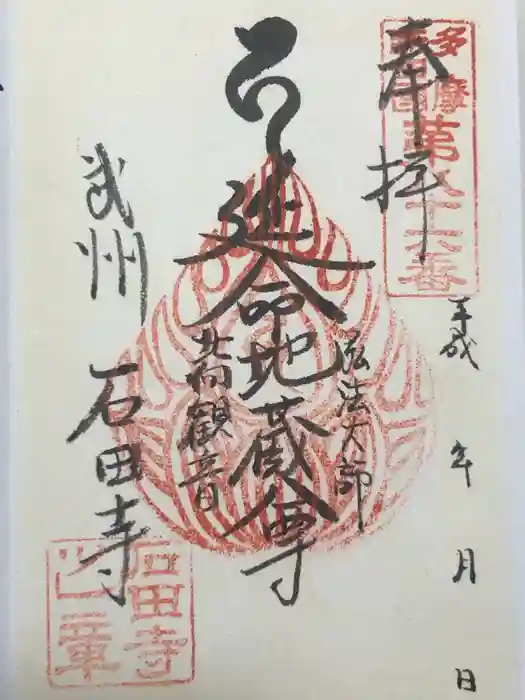 多摩
四国
第八十六番
奉拝
平成 年 月 日
弘法大師
延命地蔵尊
北向観音
武州 石田寺
石田寺
之章